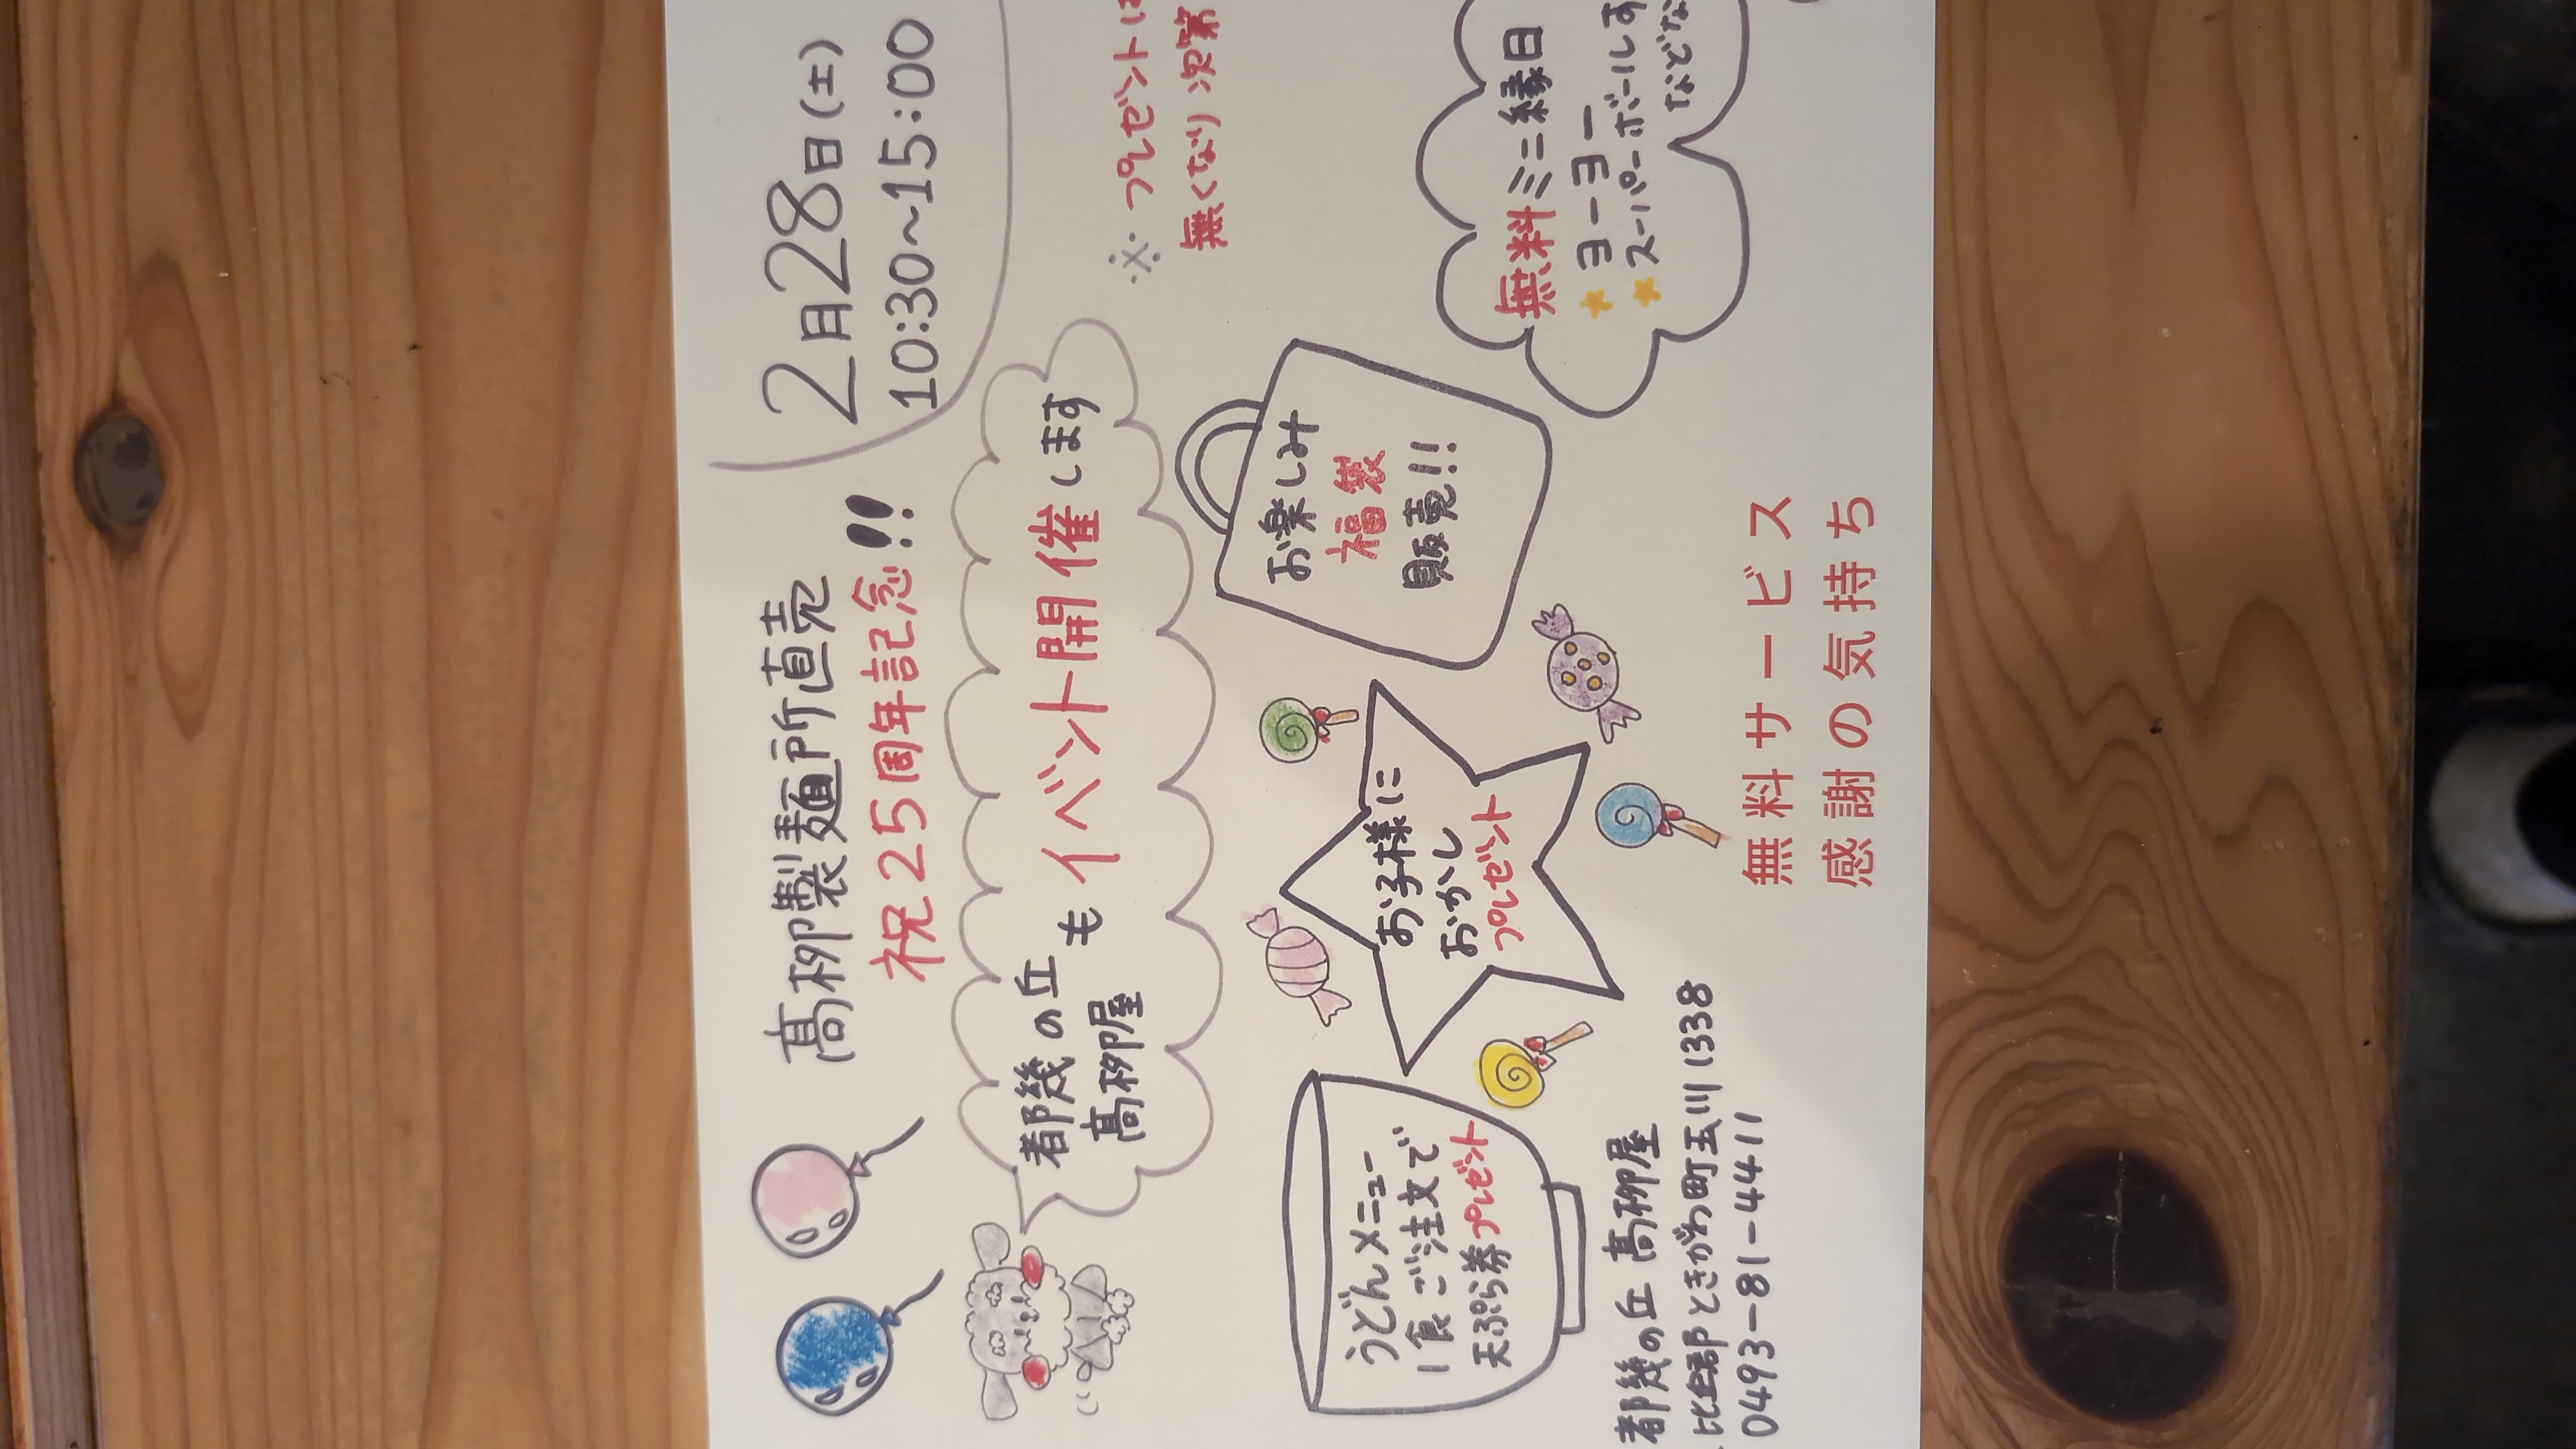 髙栁製麺所直売
祝25周年記念!!
2月28日(土)
10:30～15:00
都幾の丘
髙栁屋
も イベント開催します
※プレゼントに
無くなり次第
うどんメニュー
1食ご注文で
天ぷら券プレゼント
お子様に
おかし
プレゼント
お楽しみ
福袋
販売!!
無料ミニ縁日
★ヨーヨー
★スーパーボールす
などな
都幾の丘 髙栁屋
比企郡ときがわ町玉川1338
0493-81-4411
無料サービス
感謝の気持ち